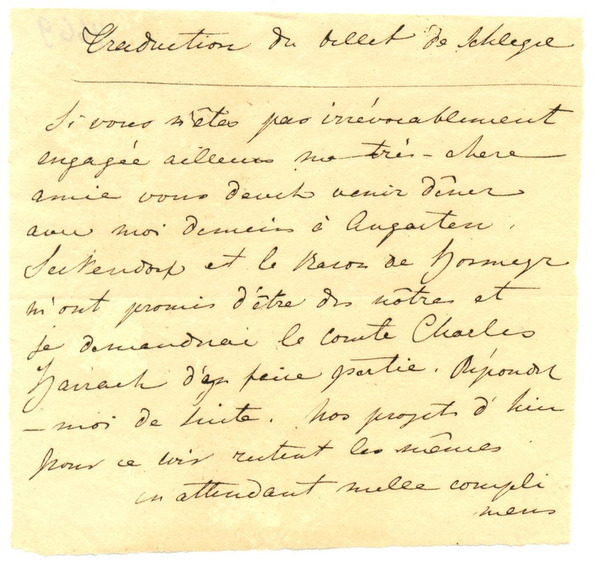 Traduction du billet de Schlegel
Si vous n'êtes pas irrévocablement
engagée ailleurs ma très-chere
amie vous devez venir dîner
avec moi demain à Augarten.
Seckendorf et le Baron de Hormayr
m'ont promis d'être des nôtres et
je demanderai le comte Charles
Harrach d'en faire partie. Répondez
-moi de suite. Nos projets d'hier
pour ce soir restent les mêmes
en attendant mille compli
mens